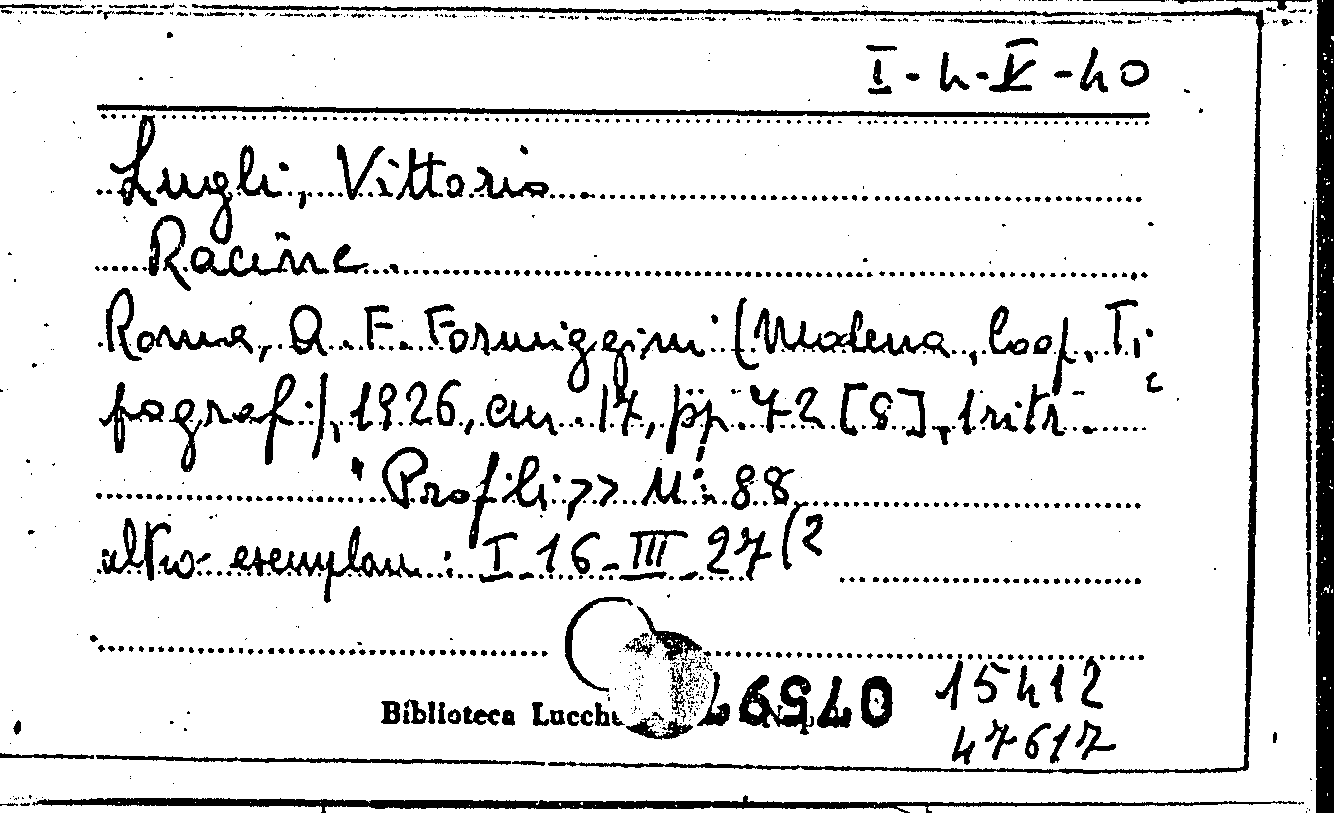 I-4-V-40
Lugli, Vittorio.
Racine.
Roma, A. F. Formiggini (Modena, Coop. Ti
pografi), 1926, cm. 17, pp. 72 [8], 1 ritr.
"Profili>> N. 88
altro esemplare: I-16-III-27(2
Biblioteca Lucche
15412
47617